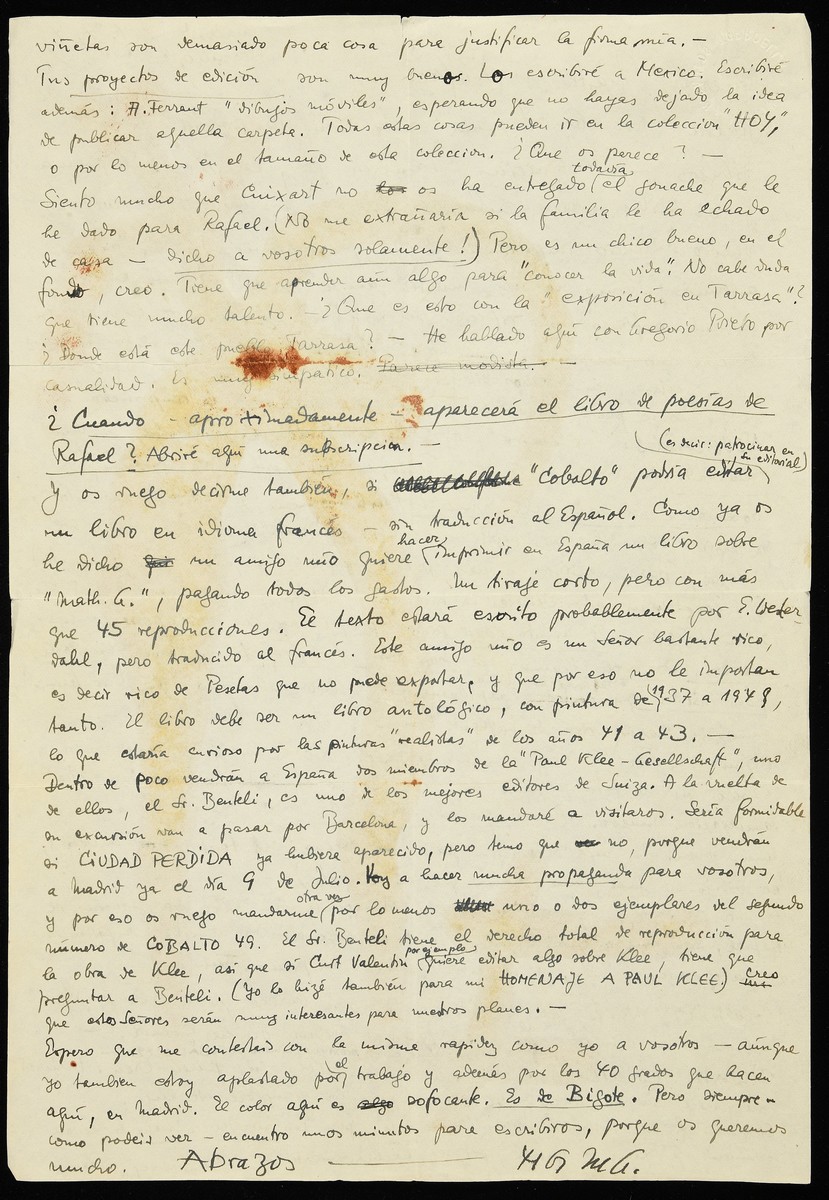 viñetas son demasiado poca cosa para justificar la firma mía. —
Tus proyectos de edición son muy buenos. Los escribiré a Mexico. Escribiré
además: A. Ferrant "dibujos móviles", esperando que no hayas dejado la idea
de publicar aquella carpeta. Todas estas cosas pueden ir en la coleccion "HOY,"
o por lo menos en el tamaño de esta coleccion. ¿Que os parece? —
Siento mucho que Cuixart no os ha entregado todavía el gouache que le
he dado para Rafael. (No me extrañaría si la familia le ha echado
de casa — dicho a vosotros solamente!) Pero es un chico bueno, en el
fondo, creo. Tiene que aprender aún algo para "conocer la vida". No cabe duda
que tiene mucho talento. — ¿Que es esto con la "exposición en Tarrasa"?
¿Donde está este pueblo Tarrasa? — He hablado aquí con Gregorio Prieto por
casualidad. Es muy simpatico. Parece modista. —
¿Cuando — aproximadamente — aparecerá el libro de poesías de
Rafael? Abriré aquí una subscripción. —
(es decir: patrocinar en su editorial)
Y os ruego decirme tambien, si "Cobalto" podría editar
un libro en idioma francés — sin traducción al Español. Como ya os
he dicho un amigo mío quiere hacer imprimir en España un libro sobre
"Math. G.", pagando todos los gastos. Un tiraje corto, pero con más
que 45 reproducciones. El texto estará escrito probablemente por E. Wester-
dahl, pero traducido al francés. Este amigo mío es un Señor bastante rico,
es decir rico de Pesetas que no puede exportar, y que por eso no le importan
tanto. El libro debe ser un libro antológico, con pintura de 1937 a 1949,
lo que estaría curioso por las pinturas "realistas" de los años 41 a 43. —
Dentro de poco vendrán a España dos miembros de la "Paul Klee-Gesellschaft", uno
de ellos, el Sr. Benteli, es uno de los mejores editores de Suiza. A la vuelta de
su excursión van a pasar por Barcelona, y los mandaré a visitaros. Sería formidable
si CIUDAD PERDIDA ya hubiera aparecido, pero temo que no, porque vendrán
a Madrid ya el día 9 de Julio. Voy a hacer mucha propaganda para vosotros,
y por eso os ruego mandarme otra vez por lo menos uno o dos ejemplares del segundo
número de COBALTO 49. El Sr. Benteli tiene el derecho total de reproducción para
la obra de Klee, así que si Curt Valentin por ejemplo quiere editar algo sobre Klee, tiene que
preguntar a Benteli. (Yo lo hizé también para mi HOMENAJE A PAUL KLEE.) Creo
que estos Señores serán muy interesantes para nuestros planes. —
Espero que me contestais con la misma rapidez como yo a vosotros — aúnque
yo tambien estoy aplastado por el trabajo y además por los 40 grados que hacen
aquí, en Madrid. El calor aquí es sofocante. Es de Bigote. Pero siempre —
como podeis ver — encuentro unos minutos para escribiros, porque os queremos
mucho. Abrazos